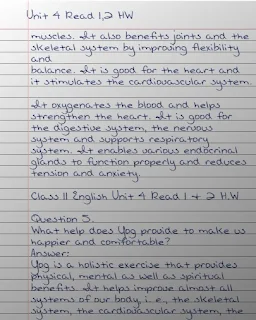 Unit 4 Read 1,2 HW
muscles. It also benefits joints and the
skeletal system by improving flexibility
and
balance. It is good for the heart and
it stimulates the cardiovascular system.
It oxygenates the blood and helps
strengthen the heart. It is good for
the digestive system, the nervous
system and supports respiratory
system. It enables various endocrinal
glands to function properly and reduces
tension and anxiety.
Class 11 English Unit 4 Read 1 + 2 H.W
Question 5.
What help does Yog provide to make us
happier and comfortable?
Answer:
Yog is a holistic exercise that provides
physical, mental as well as spiritual
benefits. It helps improve almost all
systems of our body, i. e., the skeletal
system, the cardiovascular system, the